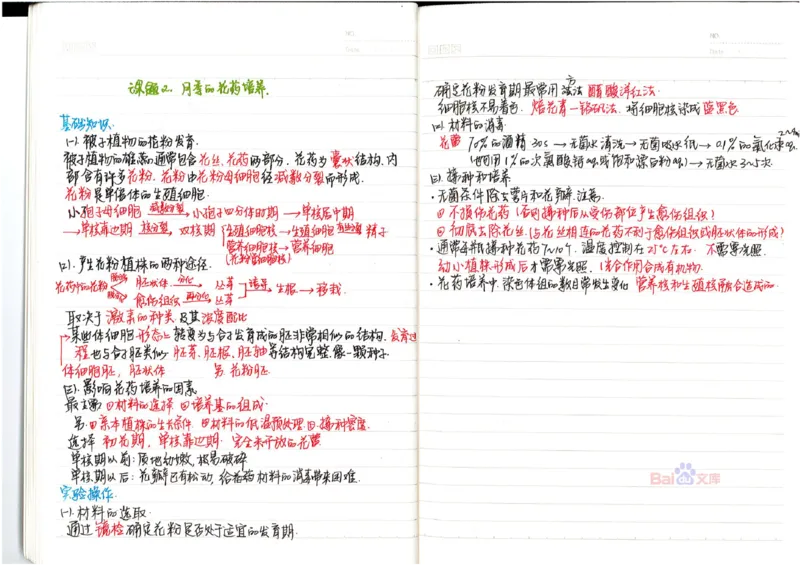 课题2. 月季的花药培养.
基础知识
(一). 被子植物的花粉发育.
被子植物的雄蕊通常包含花丝、花药两部分. 花药为囊状结构, 内
部含有许多花粉. 花粉由花粉母细胞经减数分裂而形成.
花粉是单倍体的生殖细胞.
小孢子母细胞 减数分裂→ 小孢子四分体时期 → 单核居中期
→ 单核靠边期 核分裂→ 双核期 生殖细胞核 → 生殖细胞 有丝分裂→ 精子
营养细胞核 → 营养细胞
(花粉管细胞核)
(二). 产生花粉植株的两种途径.
花药中的花粉 脱分化 胚状体 分化→ 丛芽 诱导→ 生根 → 移栽.
愈伤组织 再分化→ 丛芽
取决于激素的种类及其浓度配比
某些体细胞形态上转变为与合子发育成的胚非常相似的结构. 发育过
程也与合子胚类似. 胚芽、胚根、胚轴等结构完整. 像一颗种子
体细胞胚, 胚状体 另. 花粉胚.
(三). 影响花药培养的因素
最主要 ①材料的选择 ②培养基的组成.
另. ①亲本植株的生长条件. ②材料的低温预处理. ③. 接种密度.
选择 初花期, 单核靠边期. 完全未开放的花蕾
单核期以前: 质地幼嫩, 极易破碎
单核期以后: 花瓣已有松动, 给花药材料的消毒带来困难.
实验操作.
(一). 材料的选取.
通过镜检确定花粉是否处于适宜的发育期.
确定花粉发育期最常用方法 醋酸洋红法.
细胞核不易着色. 焙花青—铬矾法. 将细胞核染成蓝黑色
(二) 材料的消毒.
花蕾 70%的酒精 30s → 无菌水清洗 → 无菌吸水纸 → 0.1%的氯化汞
→ 无菌水 3~5次.
(三). 接种和培养.
· 无菌条件除去萼片和花瓣. 注意.
① 不损伤花药 (否则接种后从受伤部位产生愈伤组织)
② 彻底去除花丝. (与花丝相连的花药不利于愈伤组织或胚状体的形成)
· 通常每瓶接种花药 7~10个. 温度控制在25℃左右. 不需要光照.
幼小植株形成后才需要光照.
· 花药培养中. 染色体组的数目常发生变化
Bai 文库